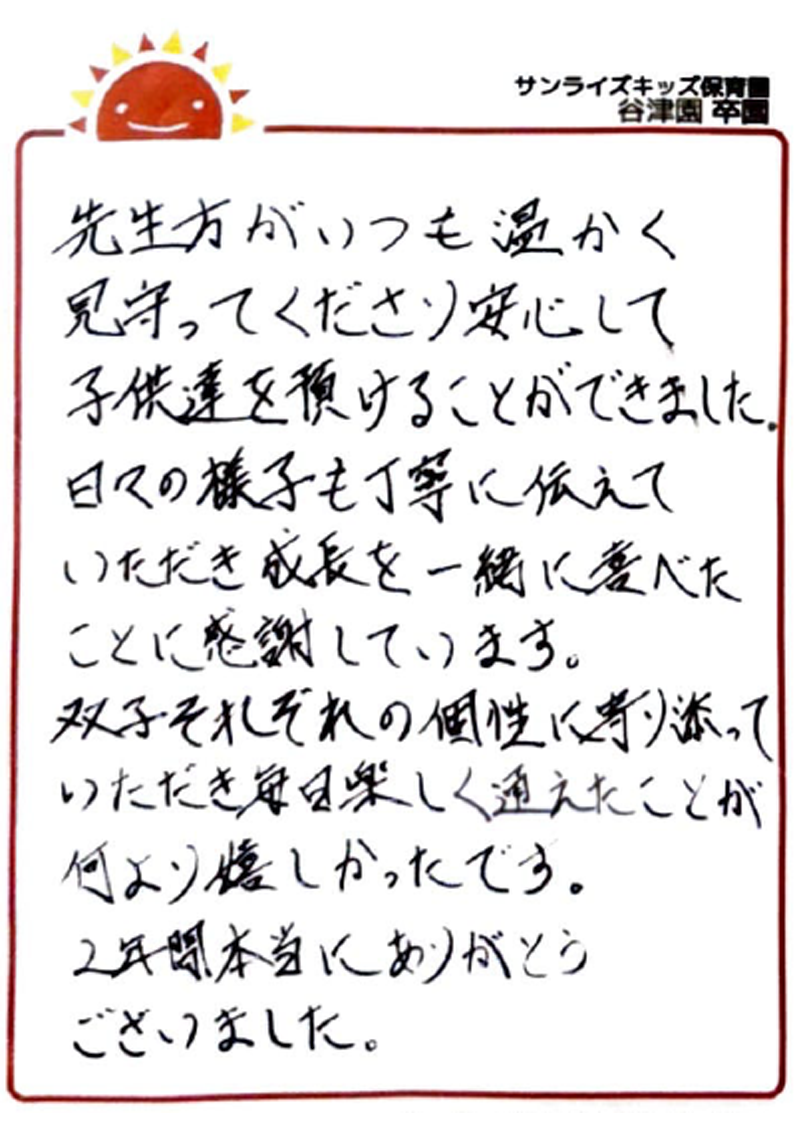 サンライズキッズ保育園
谷津園 卒園
先生方がいつも温かく
見守ってくださり安心して
子供達を預けることができました。
日々の様子も丁寧に伝えて
いただき成長を一緒に喜べた
ことに感謝しています。
双子それぞれの個性に寄り添って
いただき毎日楽しく通えたことが
何より嬉しかったです。
2年間本当にありがとう
ございました。